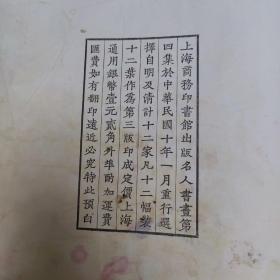 上海商務印書館出版名人書畫第
四集於中華民國十年一月重行選
擇自明及清計十二家凡十二幅裝
十二葉作為第三版印成定價上海
通用銀幣壹元貳角外埠酌加運費
匯費如有翻印遠近必究特此預白